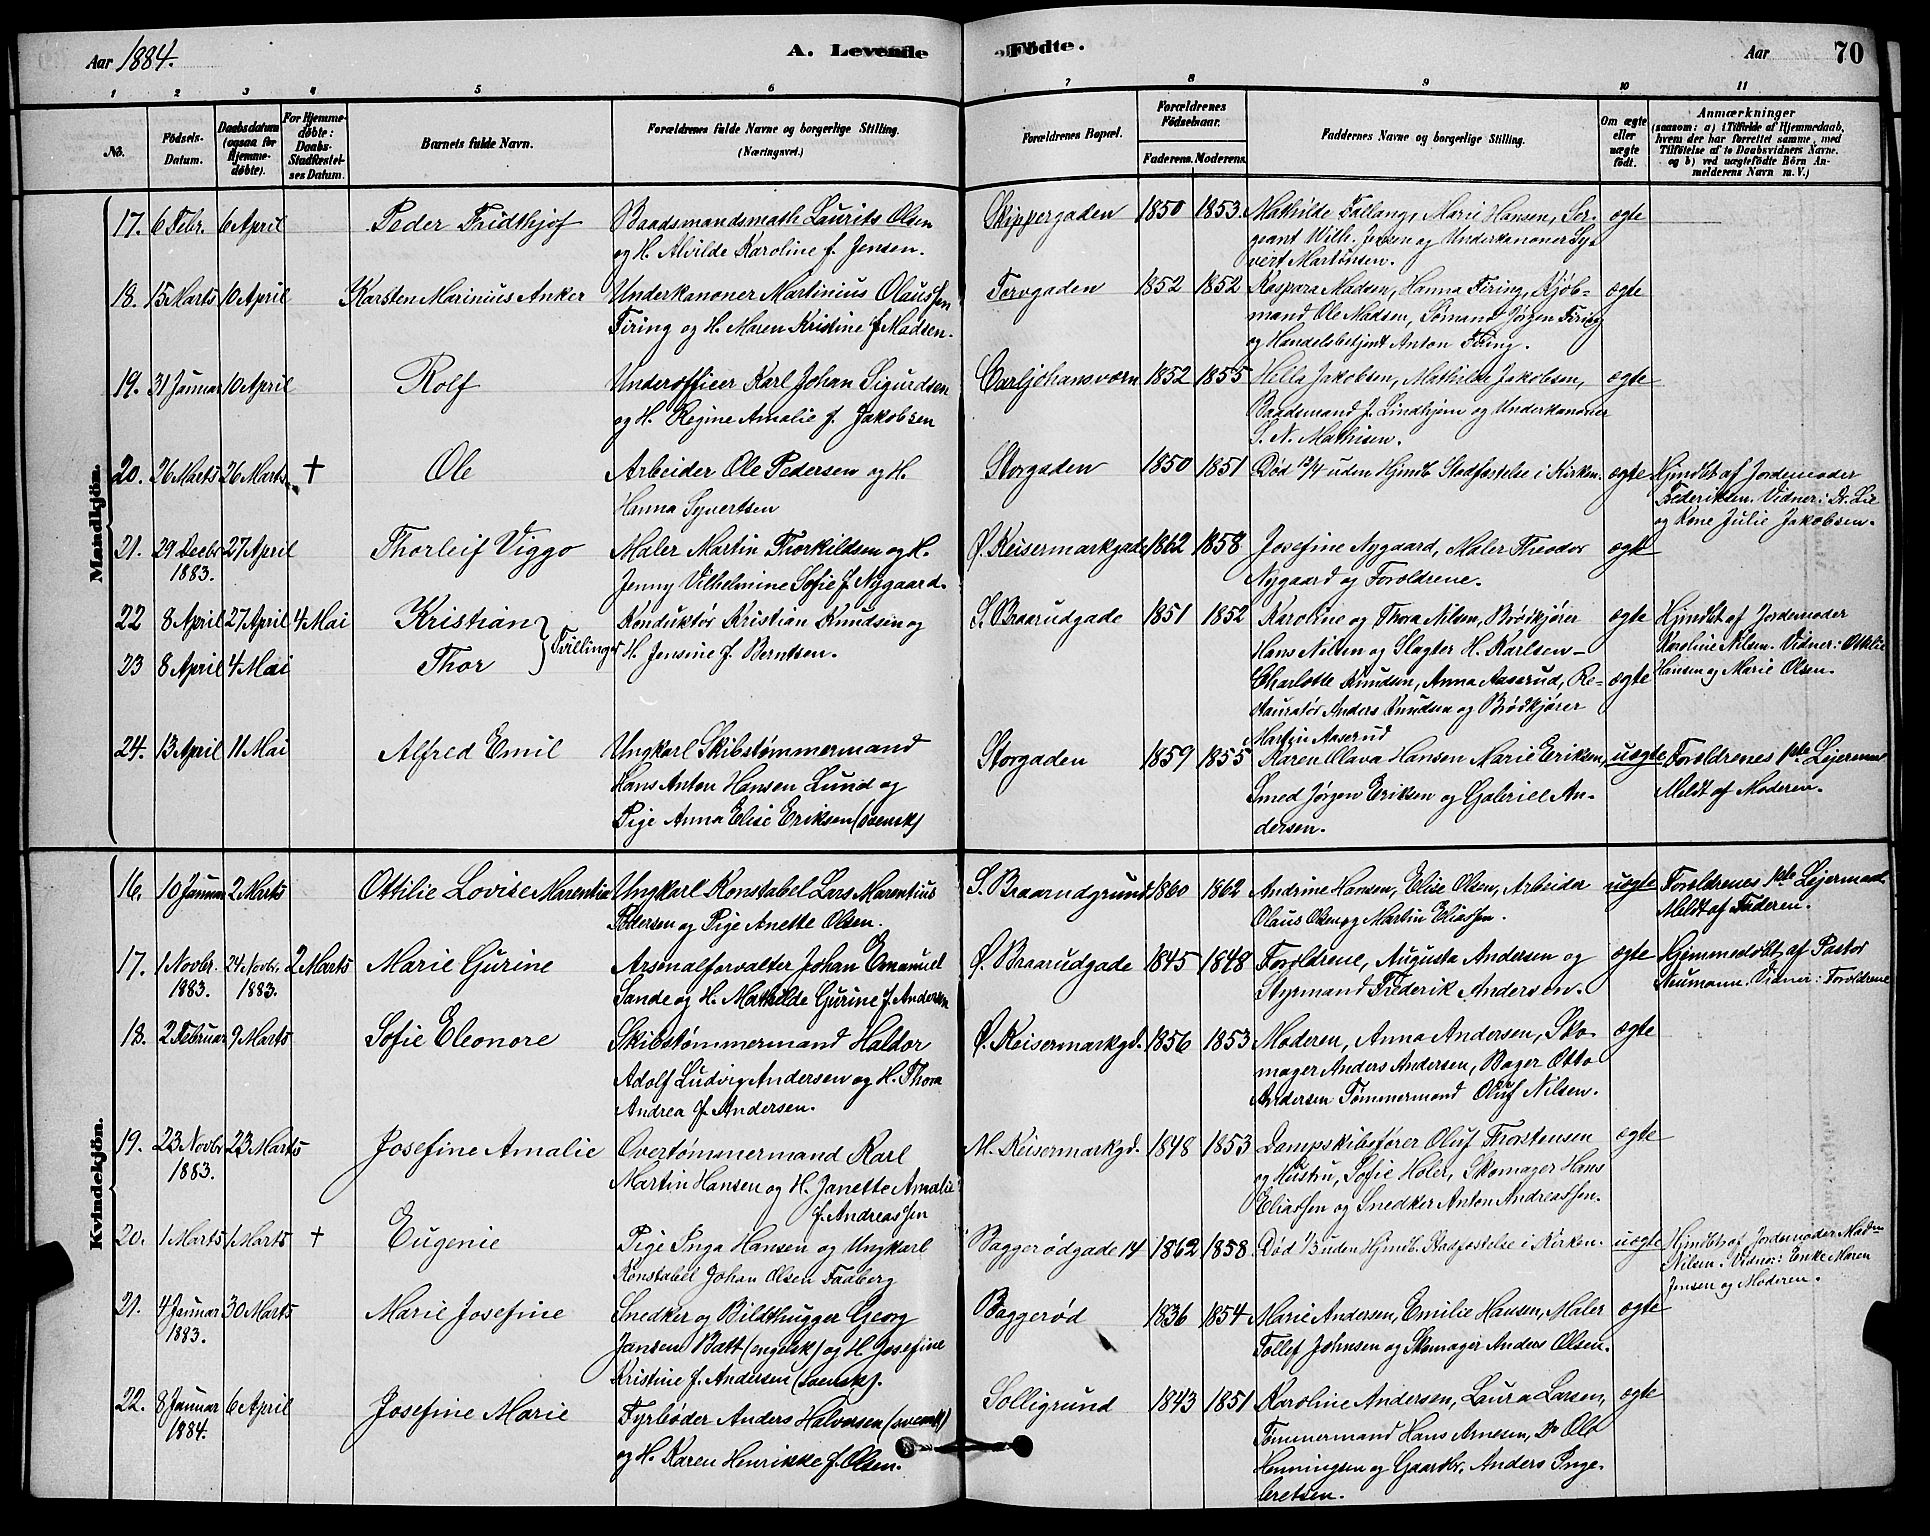 Aar 1884. A. Levende Fødte. Aar 70
1 2 3 4 5 6 7 8 9 10 11
No. Fødsels-Datum. Daabsdatum (ogsaa for Hjemmedøbte). For Hjemmedøbte: Daabs-Stadfæstelses Datum. Barnets fulde Navn. Forældrenes fulde Navne og borgerlige Stilling. (Næringsvei.) Forældrenes Bopæl. Forældrenes Fødselsaar. Faderens. Moderens. Faddernes Navne og borgerlige Stilling. Om ægte eller uægte født. Anmærkninger (saasom: a) i Tilfælde af Hjemmedaab, hvem der har forrettet samme, med Tilføielse af to Daabsvidners Navne. og b) ved uægtefødte Børn Anmelderens Navn m. V.)
Mandkjön.
17. 6 Febr. 6 April Peder Fridthjof Baadsmandsmath Laurits Olsen Skippergaden 1850 1853 Mathilde Fallang, Marie Hansen, Ser- ægte
og H. Alvilde Karoline f. Jensen. geant Wilh. Jensen og Underkanoner Sy-
vert Martinsen.
18. 15 Marts 10 April Karsten Marinius Anker Underkanoner Martinius Olaussen Torvgaden 1852 1852 Kaspara Madsen, Hanna Firing, Kjøb- ægte
Firing og H. Maren Kristine f. Madsen. mand Ole Madsen, Sømand Jørgen Firing
og Handelsbetjent Anton Firing.
19. 31 Januar 10 April Rolf Underofficer Karl Johan Sigurdsen Carljohansværn 1852 1855 Hella Jakobsen, Mathilde Jakobsen, ægte
og H. Regine Amalie f. Jakobsen Baadsmand J. Lindhjem og Underkanoner
S. N. Mathisen.
20. 26 Marts 26 Marts + Ole Arbeider Ole Pedersen og H. Storgaden 1850 1851 Død uden Hjmdb. Stadfæstelse i Kirken. ægte Hjmdbt af Jordemoder
Hanna Syvertsen Frederiksen. Vidner: Dr. Lie
og Kone Julie Jakobsen.
21. 29 Decbr 27 April Thorleif Viggo Maler Martin Thorkildsen og H. Ø. Keisermarkgade 1862 1858 Josefine Nygaard, Maler Theodor ægte
1883. Jenny Vilhelmine Sofie f. Nygaard. Nygaard og Forældrene.
22 8 April 27 April 4 Mai Kristian } Tvillinger Konduktør Kristian Knudsen og S. Braarudgade 1851 1852 Karoline og Thora Nilsen, Brødkjører ægte Hjmdbt af Jordemoder
H. Jensine f. Berntsen. Hans Nilsen og Slagter H. Karlsen — Karoline Nilsen. Vidner: Othilie
23 8 April 4 Mai Thor Charlotte Knudsen, Anna Aaserud, Re- ægte Hansen og Marie Olsen.
staurator Anders Knudsen og Brødkjører
Martin Aaserud
24. 13 April 11 Mai Alfred Emil Ungkarl Skibstømmermand Storgaden 1859 1855 Karen Olava Hansen Marie Eriksen, uægte Forældrenes 1ste Leiermaal
Hans Anton Hansen Lund og Smed Jørgen Eriksen og Gabriel An- Meldt af Moderen.
Pige Anna Elise Eriksen (svensk) dersen.
Kvindekjön.
16. 10 Januar 2 Marts Ottilie Lovise Marentia Ungkarl Konstabel Lars Marentius S. Braarudgrund 1860 1862 Andrine Hansen, Elise Olsen, Arbeider uægte Forældrenes 1ste Leiermaal
Pedersen og Pige Anette Olsen. Olaus Olsen og Martin Eliassen. Meldt af Faderen.
17. 1 Novbr. 24 Novbr. 2 Marts Marie Gurine Arsenalforvalter Johan Emanuel Ø. Braarudgade 1845 1848 Forældrene, Augusta Andersen og ægte Hjemmedøbt af Pastor
1883. 1883. Sande og H. Mathilde Gurine f. Andersen Styrmand Frederik Andersen. Neumann. Vidner: Forældrene
18. 2 Februar 9 Marts Sofie Eleonore Skibstømmermand Haldor Ø. Keisermarkgd. 1856 1853 Moderen, Anna Andersen, Sko- ægte
Adolf Ludvig Andersen og H. Thora mager Anders Andersen, Bager Otto
Andrea f. Andersen. Andersen Tømmermand Oluf Nilsen.
19. 23 Novbr 23 Marts Josefine Amalie Overtømmermand Karl M. Keisermarkgd. 1848 1853 Dampskibsfører Oluf Trostensen ægte
1883. Martin Hansen og H. Janette Amalie og Hustru, Sofie Holer, Skomager Hans
f. Andreassen Eliassen og Snedker Anton Andreassen.
20. 1 Marts 1 Marts + Eugenie Pige Inga Hansen og Ungkarl Baggerødgade 14 1862 1858 Død 1/3 uden Hjmdb. Stadfæstelse i Kirken. uægte Hjmdbt af Jordemoder Mad-
Konstabel Johan Olsen Faaberg Nilsen. Vidner: Enke Maren
Jensen og Moderen.
21. 4 Januar 30 Marts Marie Josefine Snedker og Bildthugger Georg Baggerød 1836 1854 Marie Andersen, Emilie Hansen, Maler ægte
1883. Jansen Batt (engelsk) og H. Josefine Tollef Johnsen og Skomager Anders Olsen.
Kristine f. Andersen (svensk).
22. 8 Januar 6 April Josefine Marie Fyrbøder Anders Halvorsen (svensk) Solligrund 1843 1851 Karoline Andersen, Laura Larsen, ægte
1884. og H. Karen Henrikke f. Olsen. Tømmermand Hans Arnesen, Do Ole
Henningsen og Gaardbr. Anders Inge-
bretsen.